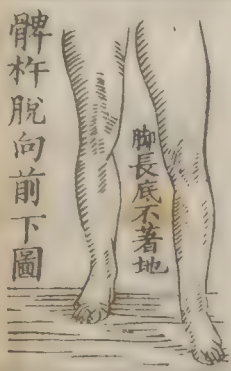 髀杵脫向前下圖
脚長底不著地